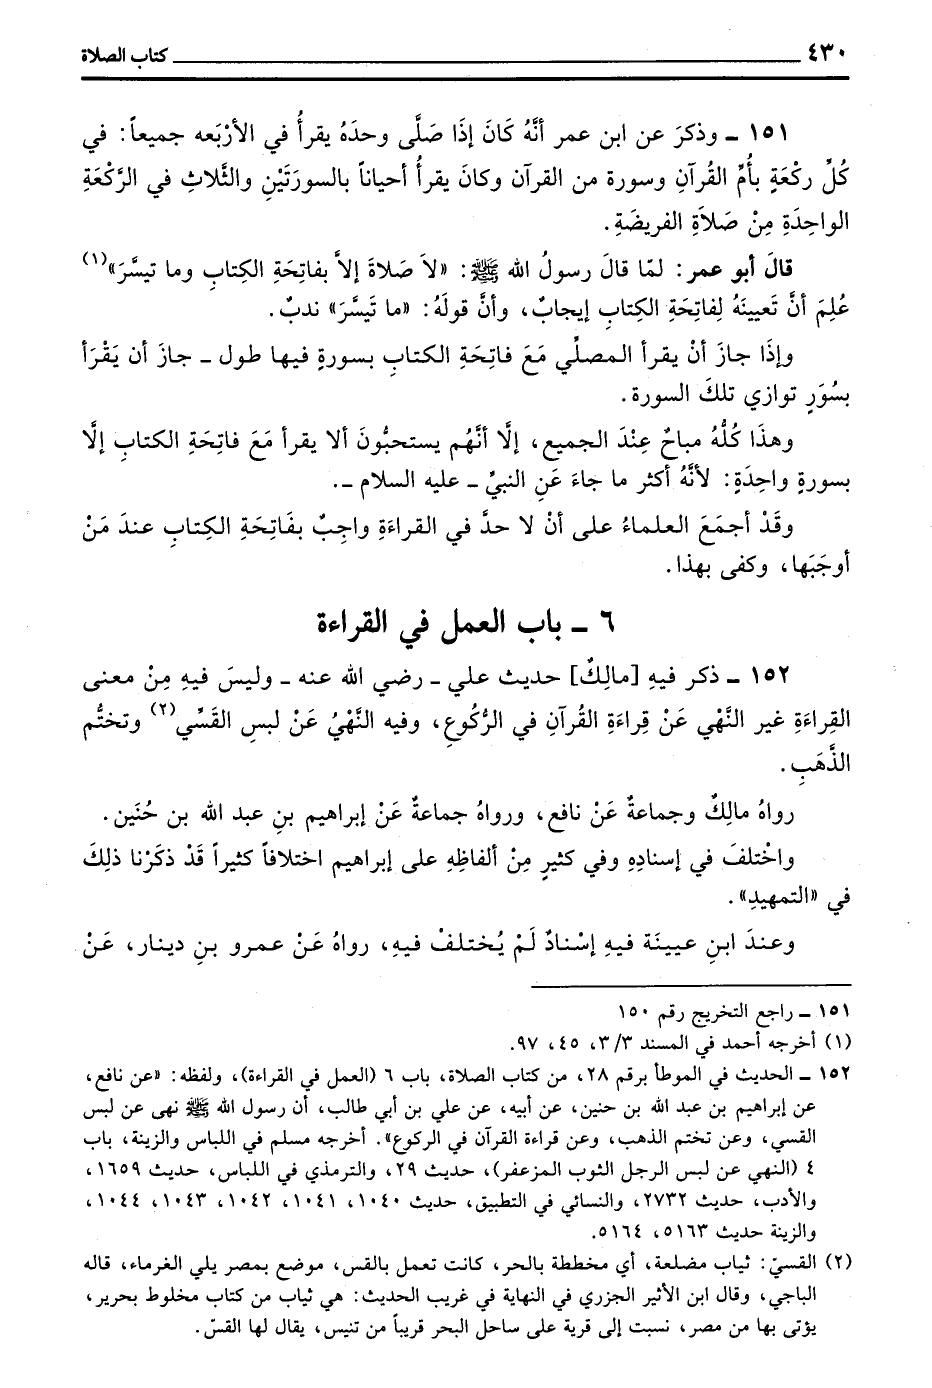 ٤٣٠ كتاب الصلاة
١٥١ ـ وذكرَ عن ابن عمر أنَّهُ كَانَ إذَا صَلَّى وحدَهُ يقرأُ في الأرْبَعه جميعاً: في
كُلِّ ركْعَةٍ بأُمِّ القُرآنِ وسورة من القرآن وكانَ يقرأُ أحياناً بالسورَتَيْنِ والثَّلاثِ في الرَّكعَةِ
الواحِدَةِ مِنْ صَلاَةِ الفريضَةِ.
قالَ أبو عمر: لمّا قالَ رسولُ الله ﷺ: «لاَ صَلاةَ إلاَّ بفاتِحَةِ الكِتابِ وما تيسَّرَ»(١)
عُلِمَ أنَّ تَعيينَهُ لِفاتِحَةِ الكِتابِ إيجابٌ، وأنَّ قولَهُ: «ما تَيسَّرَ» ندبٌ.
وإذَا جازَ أنْ يقرأ المصلِّي مَعَ فاتِحَةِ الكتابِ بسورةٍ فيها طول ـ جازَ أن يَقْرَأ
بسُوَرٍ توازي تلكَ السورة.
وهذَا كُلُّهُ مباحٌ عِنْدَ الجميعِ، إلَّا أنَّهُم يستحبُّونَ ألا يقرأ مَعَ فاتحَةِ الكتابِ إلَّا
بسورةٍ واحِدَةٍ: لأنَّهُ أكثر ما جاءَ عَنِ النبيِّ ـ عليه السلام ـ.
وقَدْ أجمَعَ العلماءُ على أنْ لا حدَّ في القراءَةِ واجِبٌ بفَاتِحَةِ الكِتابِ عندَ مَنْ
أوجَبَها، وكفى بهذا.
٦ ـ باب العمل في القراءة
١٥٢ ـ ذكر فيهِ [مالِكٌ] حديث علي ـ رضي الله عنه ـ وليسَ فيهِ مِنْ معنى
القِراءَةِ غير النَّهْي عَنْ قِراءَةِ القُرآنِ في الرُّكُوعِ، وفيه النَّهْيُ عَنْ لبسِ القَسِّي(٢) وتختُّم
الذَّهَبِ.
رواهُ مالِكٌ وجماعةٌ عَنْ نافع، ورواهُ جماعةٌ عَنْ إبراهيم بنِ عبد الله بن حُنَين.
واخْتلفَ في إسنادِهِ وفي كثيرٍ مِنْ ألفاظِهِ على إبراهيم اختلافاً كثيراً قَدْ ذكَرْنا ذلِكَ
في «التمهيدِ».
وعندَ ابنِ عيينَة فيهِ إسْنادٌ لَمْ يُختلفْ فيهِ، رواهُ عَنْ عمرو بنِ دينار، عَنْ
١٥١ ـ راجع التخريج رقم ١٥٠
(١) أخرجه أحمد في المسند ٣/٣، ٤٥، ٩٧.
١٥٢ ـ الحديث في الموطأ برقم ٢٨، من كتاب الصلاة، باب ٦ (العمل في القراءة)، ولفظه: «عن نافع،
عن إبراهيم بن عبد الله بن حنين، عن أبيه، عن علي بن أبي طالب، أن رسول الله ﷺ نهى عن لبس
القسي، وعن تختم الذهب، وعن قراءة القرآن في الركوع». أخرجه مسلم في اللباس والزينة، باب
٤ (النهي عن لبس الرجل الثوب المزعفر)، حديث ٢٩، والترمذي في اللباس، حديث ١٦٥٩،
والأدب، حديث ٢٧٣٢، والنسائي في التطبيق، حديث ١٠٤٠، ١٠٤١، ١٠٤٢، ١٠٤٣، ١٠٤٤،
والزينة حديث ٥١٦٣، ٥١٦٤.
(٢) القسيّ: ثياب مضلعة، أي مخططة بالحر، كانت تعمل بالقس، موضع بمصر يلي الغرماء، قاله
الباجي، وقال ابن الأثير الجزري في النهاية في غريب الحديث: هي ثياب من كتاب مخلوط بحرير،
يؤتى بها من مصر، نسبت إلى قرية على ساحل البحر قريباً من تنيس، يقال لها القسّ.